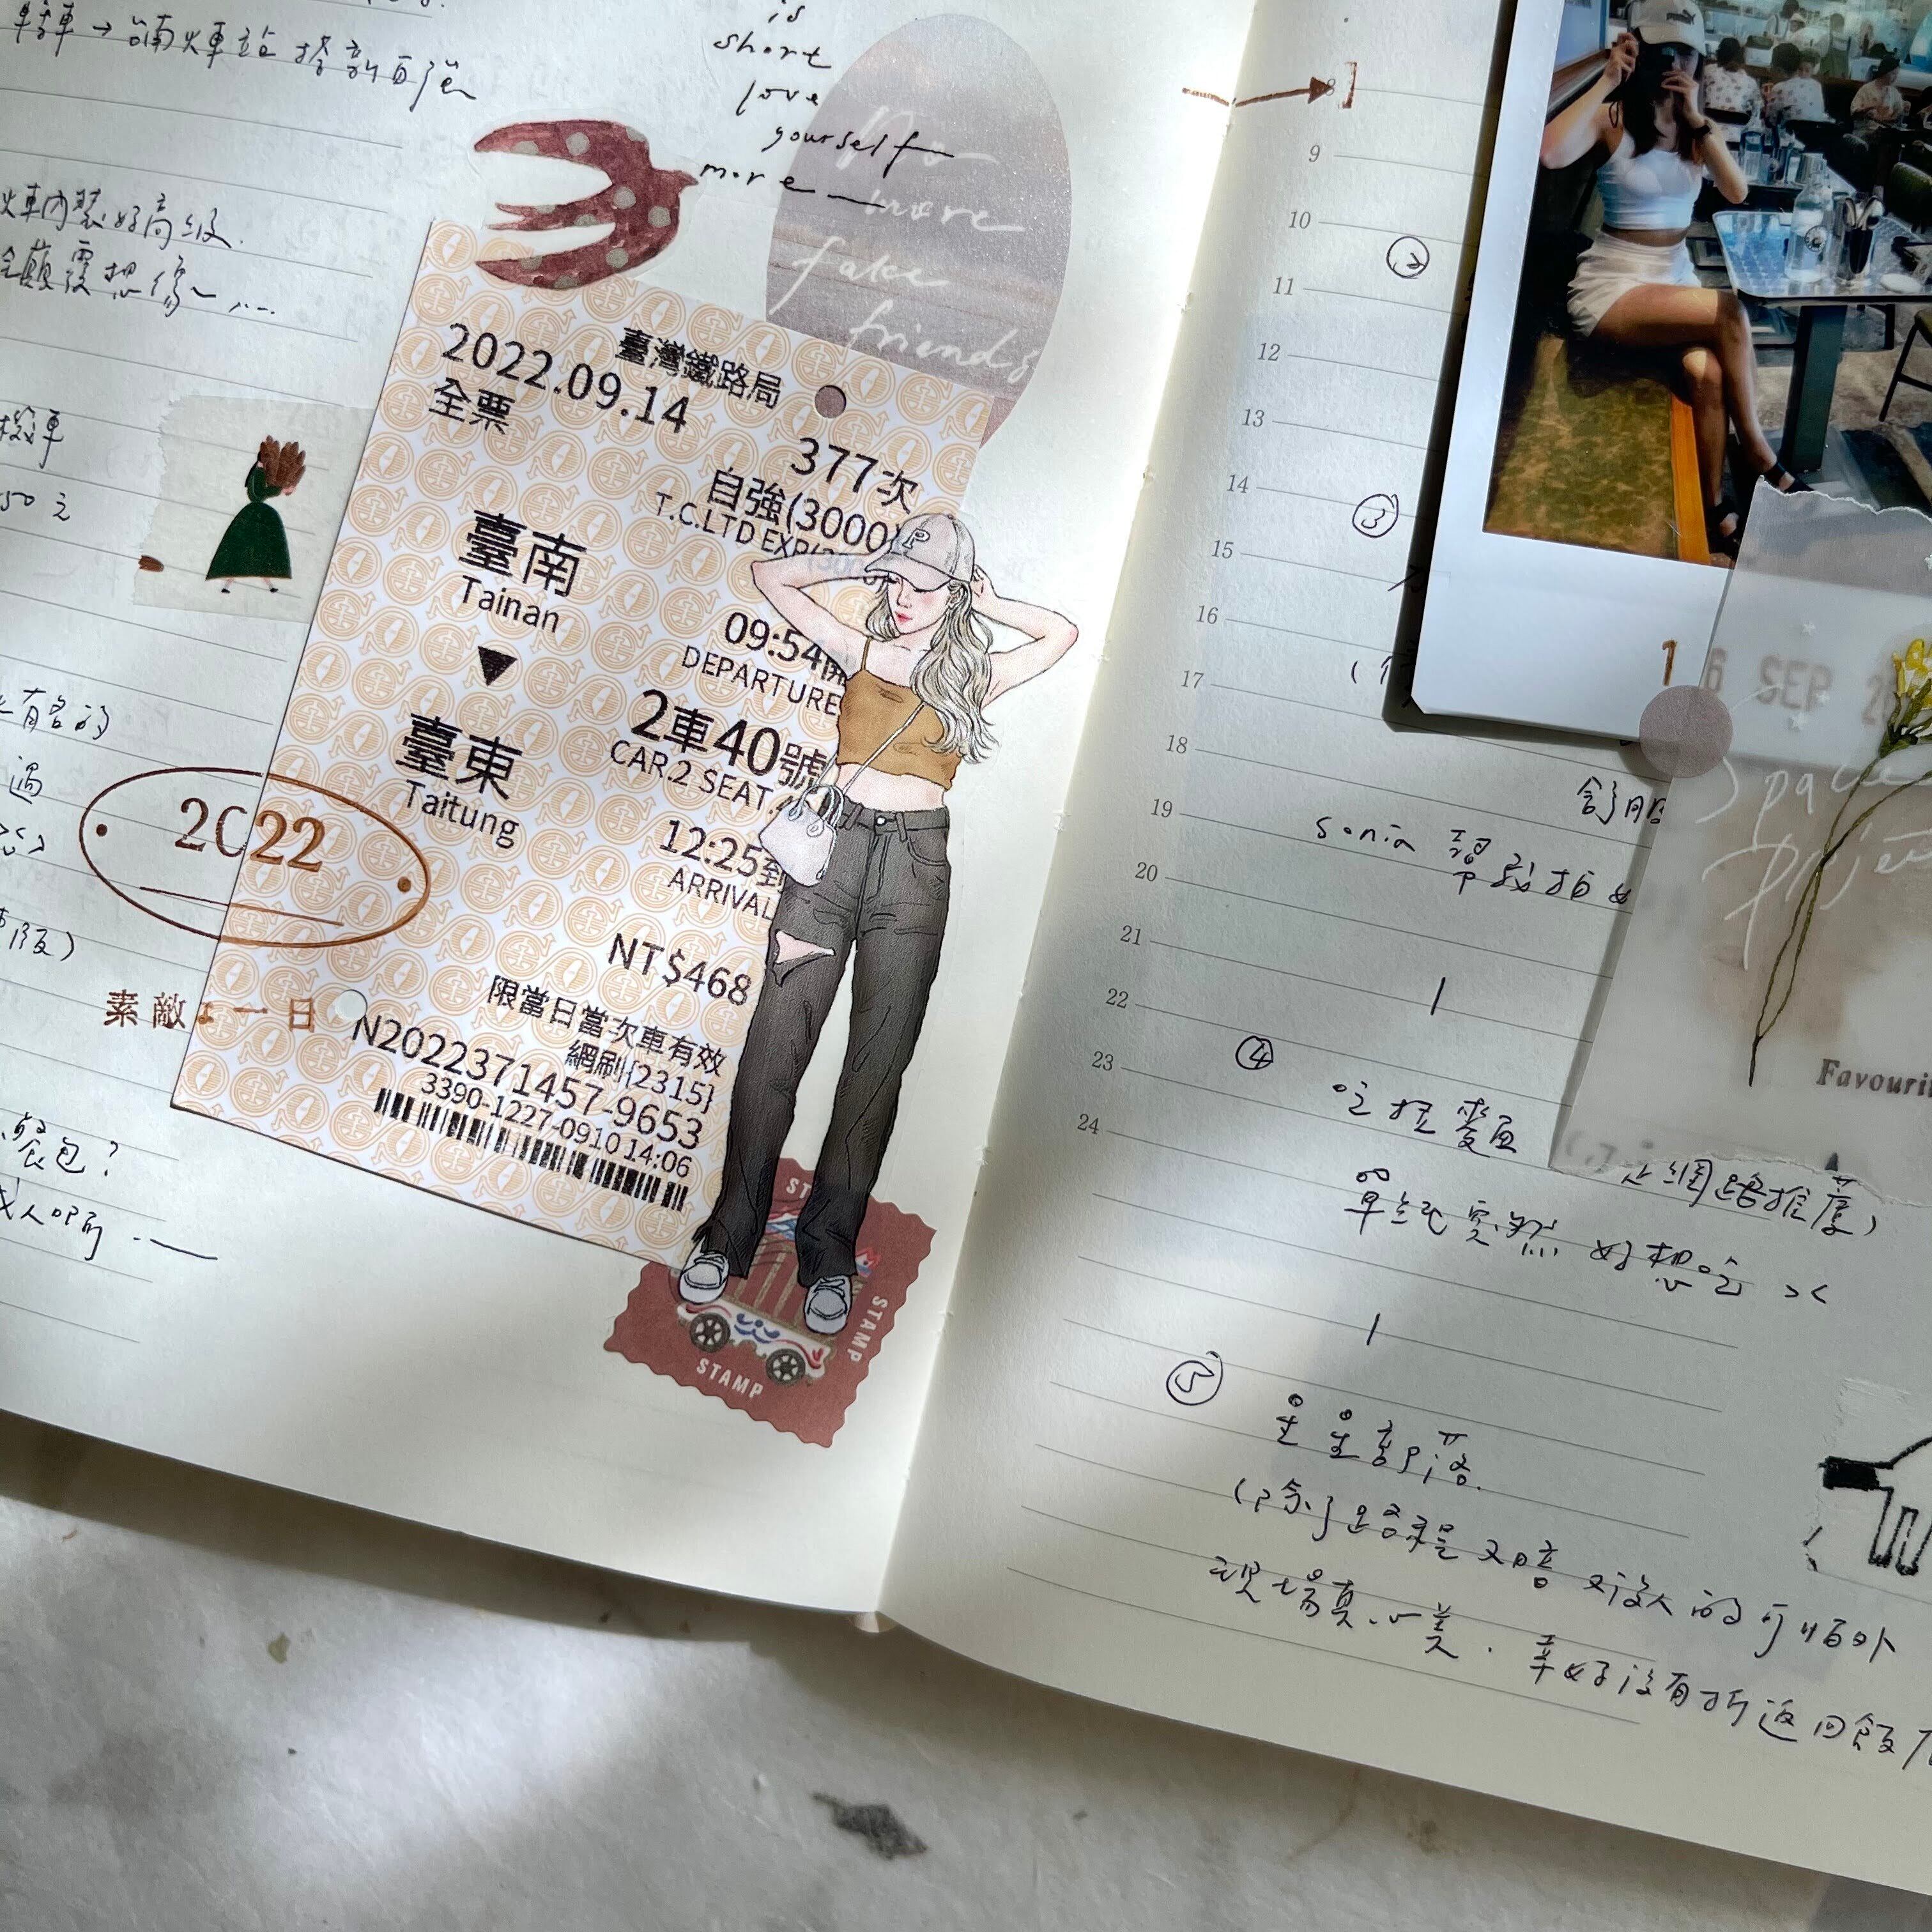 火車站搭新自強
火車內裝好高級
機車
50元
有名的
過
餐包?
is
short
love
yourself
more
No
more
fake
friends
臺灣鐵路局
2022.09.14
全票
377次
自強(3000)
T.C.LTD EXP(3000)
臺南
Tainan
09:54開
DEPARTURE
▼
臺東
Taitung
2車40號
CAR.2 SEAT.
12:25到
ARRIVAL
NT$468
限當日當次車有效
網刷{2315}
N2022371457-9653
3390-1227-0910 14:06
2022
素敵な一日
STAMP
STAMP
8
9
10
11
12
13
14
15
16
17
18
19
20
21
22
23
24
②
③
16 SEP 20
space
project
Favouri
舒服
sonia 幫我拍
④
吃拉麵
網路推薦)
單純突然好想吃 ><
⑤
星星部落
(除了路程又暗又沒人的可怕外
現場真心美.幸好沒有折返回飯